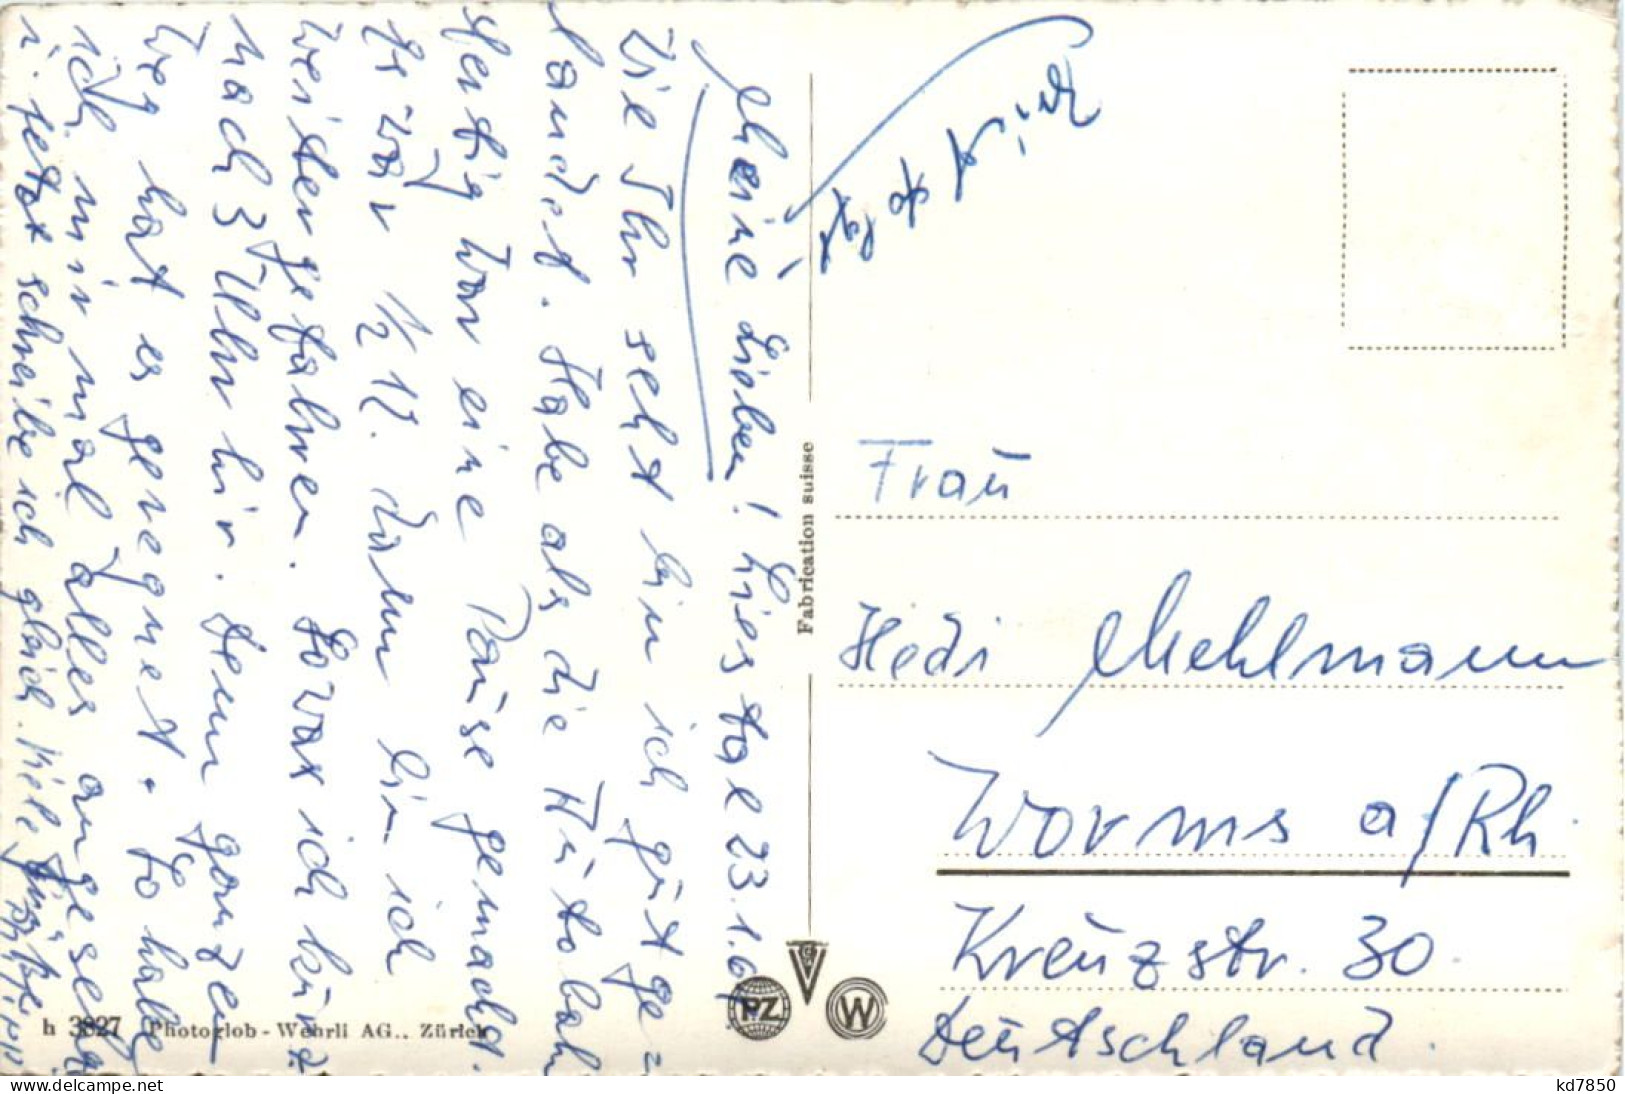 Meine Lieben! Liestal 23.1.6
Wie Ihr seht bin ich gut ge=
landet. Habe als die Autobahn
fertig war eine Pause gemacht.
Es war ½ 12. dann bin ich
weitergefahren. So war ich kurz
nach 3 Uhr hir. Denn ganzen
Weg hat es geregnet. So habe
ich mir mal alles angesehen
u. jetzt schreibe ich gleich. Viele Grüße
Frau
Hedi Mehlmann
Worms a/Rh
Kreuzstr. 30.
Deutschland.
Fabrication suisse
PZ
W
h 3827 Photoglob-Wehrli AG., Zürich
www.delcampe.net
kd7850